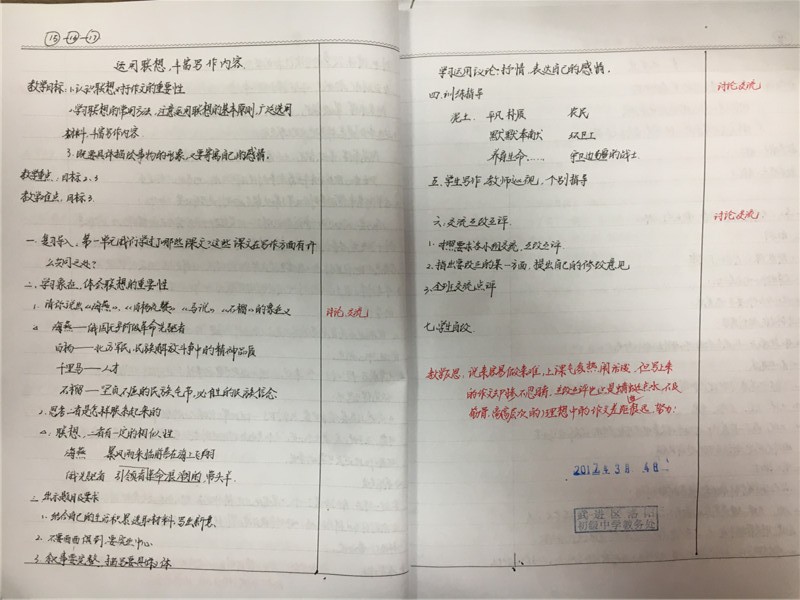 ⑮-⑯-⑰
运用联想,丰富写作内容
教学目标:1.认识联想对作文的重要性
2.学习联想的常用方法,注意运用联想的基本原则,广泛选用
材料,丰富写作内容.
3.既要具体描状事物的形象,又要寄寓自己的感情.
教学重点:目标2、3
教学难点:目标3.
一.复习导入,第一单元我们学过了哪些课文?这些课文在写作方面有什
么共同之处?
二.学习象征,体会联想的重要性
1.请你说出《海燕》、《白杨礼赞》、《马说》、《石榴》的象征义
海燕——俄国无产阶级革命先驱者
白杨——北方军民,民族解放斗争中的精神品质
千里马——人才
石榴——坚贞不屈的民族气节,必胜的民族信念.
讨论,交流
2.思考二者是怎样联系起来的
联想,二者有一定的相似性
海燕 暴风雨来临前在海上飞翔
俄先驱者 引领着革命浪潮的带头羊.
三.出示题目及要求
1.结合自己的生活积累选取材料,写出新意.
2.不要面面俱到,要突出中心.
3.叙事要完整,描写要具体
学习运用议论、抒情,表达自己的感情.
四.训练指导
讨论交流
泥土 平凡 朴质 农民
默默奉献 环卫工
养育生命…… 守卫边疆的战士
五.学生写作,教师巡视,个别指导
六.交流互改互评.
讨论交流
1.对照要求各小组交流,互改互评.
2.指出要改正的某一方面,提出自己的修改意见
3.全班交流点评
七.学生自改.
教学反思:说来容易做来难,上课气氛热闹活泼,但写上来
的作文却惨不忍睹,互改互评也只是蜻蜓点水,不及
筋骨,离高层次的、理想中的作文差距甚远,努力!
2017年3月4日
武进区洛阳
初级中学教务处